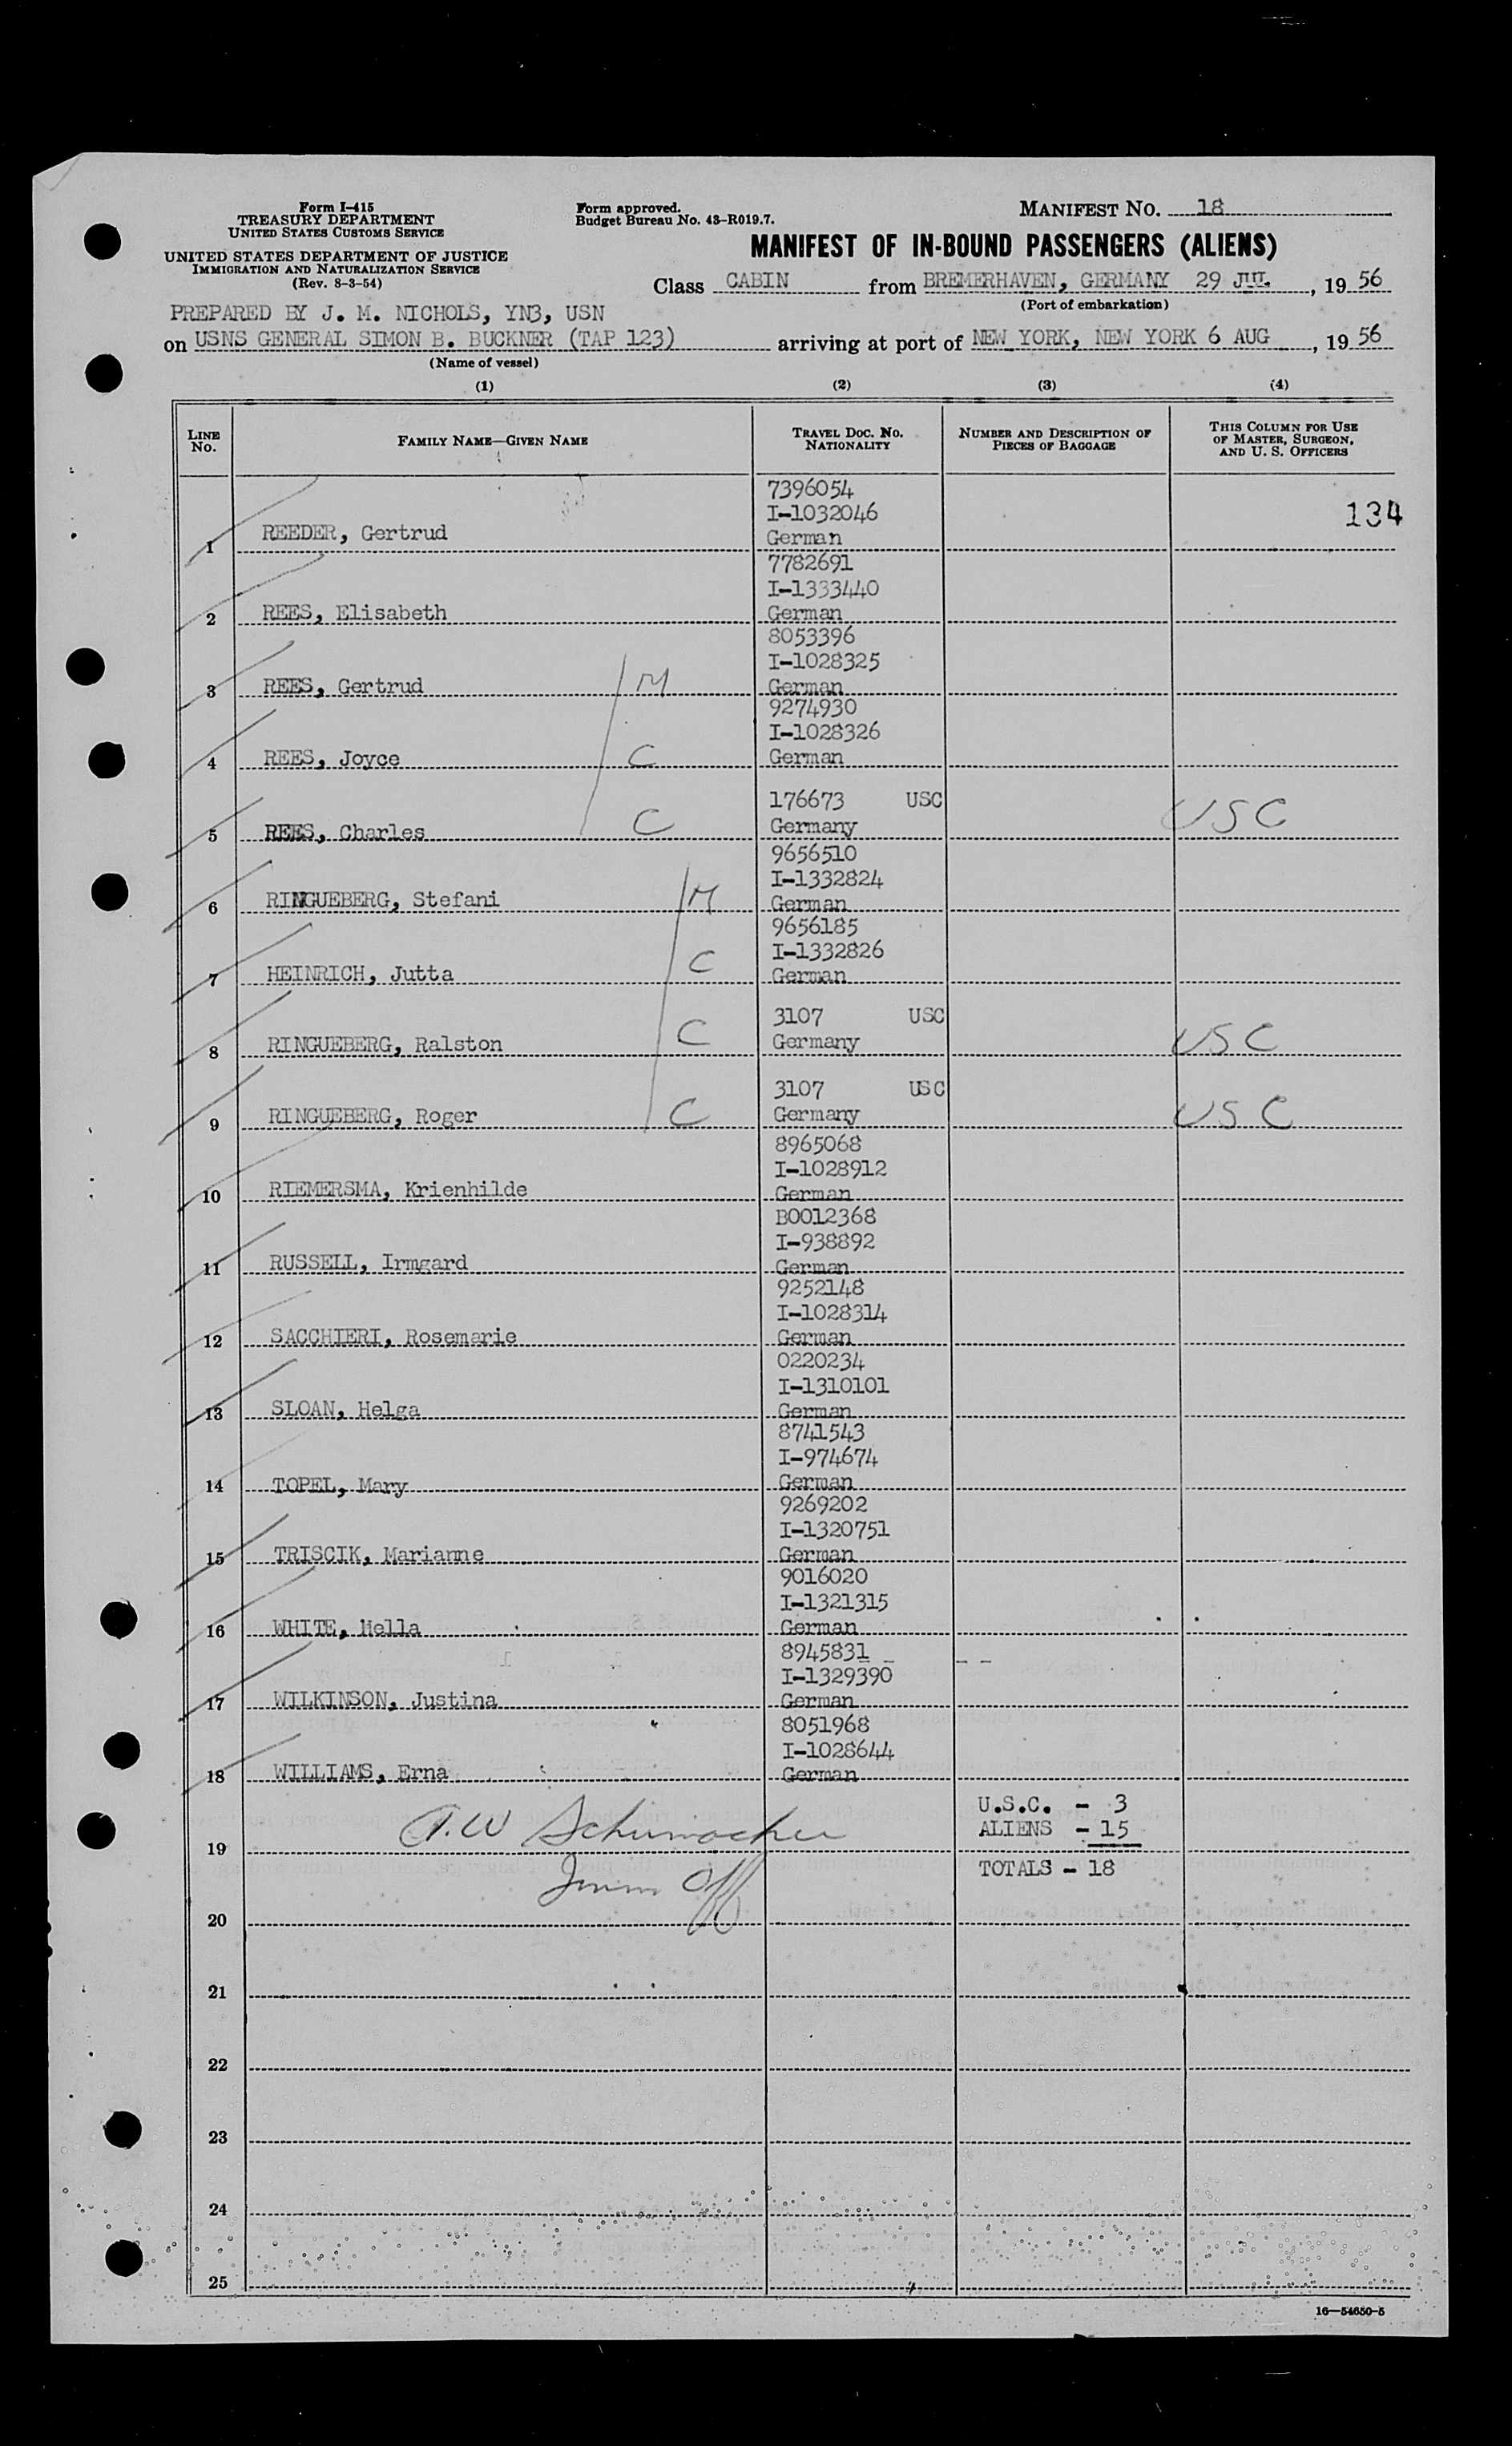 Form I-415
TREASURY DEPARTMENT
UNITED STATES CUSTOMS SERVICE
UNITED STATES DEPARTMENT OF JUSTICE
IMMIGRATION AND NATURALIZATION SERVICE
(Rev. 8-3-54)
Form approved.
Budget Bureau No. 43-R019.7.
MANIFEST NO. 18
MANIFEST OF IN-BOUND PASSENGERS (ALIENS)
Class CABIN from BREMERHAVEN, GERMANY 29 JUL. , 19 56
(Port of embarkation)
PREPARED BY J. M. NICHOLS, YN3, USN
on USNS GENERAL SIMON B. BUCKNER (TAP 123) arriving at port of NEW YORK, NEW YORK 6 AUG , 19 56
(Name of vessel)
(1) (2) (3) (4)
LINE NO.
FAMILY NAME—GIVEN NAME
TRAVEL DOC. NO. NATIONALITY
NUMBER AND DESCRIPTION OF PIECES OF BAGGAGE
THIS COLUMN FOR USE OF MASTER, SURGEON, AND U. S. OFFICERS
7396054
I-1032046 134
1 REEDER, Gertrud German
7782691
I-1333440
2 REES, Elisabeth German
8053396
I-1028325
3 REES, Gertrud M German
9274930
I-1028326
4 REES, Joyce C German
176673 USC
5 REES, Charles C Germany USC
9656510
I-1332824
6 RINGUEBERG, Stefani M German
9656185
I-1332826
7 HEINRICH, Jutta C German
3107 USC
8 RINGUEBERG, Ralston C Germany USC
3107 USC
9 RINGUEBERG, Roger C Germany USC
8965068
I-1028912
10 RIEMERSMA, Krienhilde German
B0012368
I-938892
11 RUSSELL, Irmgard German
9252148
I-1028314
12 SACCHIERI, Rosemarie German
0220234
I-1310101
13 SLOAN, Helga German
8741543
I-974674
14 TOPEL, Mary German
9269202
I-1320751
15 TRISCIK, Marianne German
9016020
I-1321315
16 WHITE, Hella German
8945831
I-1329390
17 WILKINSON, Justina German
8051968
I-1028644
18 WILLIAMS, Erna German
U.S.C. - 3
19 A.W Schumacher ALIENS - 15
Imm Off TOTALS - 18
20
21
22
23
24
25
16—54650-5